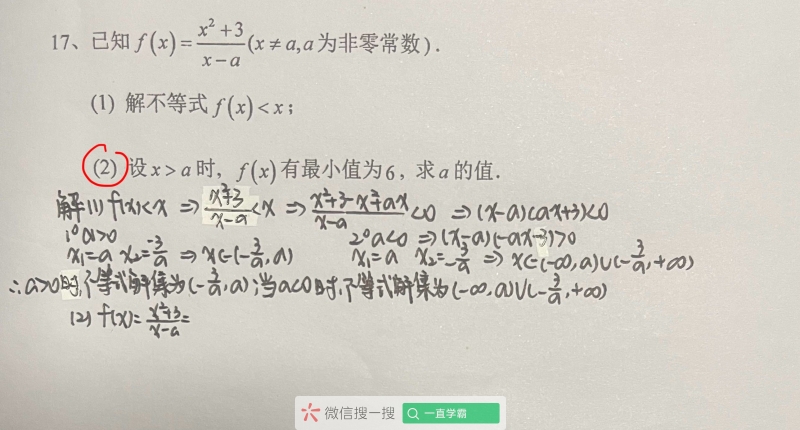 17、已知 f(x)=\frac{x²+3}{x-a}(x≠a,a为非零常数).
(1) 解不等式 f(x)<x;
(2) 设 x>a 时, f(x) 有最小值为6, 求 a 的值.
解(1) f(x)<x ⇒ \frac{x²+3}{x-a}<x ⇒ \frac{x²+3-x²+ax}{x-a}<0 ⇒ (x-a)(ax+3)<0
1° a>0 2° a<0 ⇒ (x-a)(-ax-3)>0
x₁=a x₂=\frac{-3}{a} ⇒ x∈(-\frac{3}{a},a) x₁=a x₂=-\frac{3}{a} ⇒ x∈(-∞,a)∪(-\frac{3}{a},+∞)
∴a>0时,不等式解集为(-\frac{3}{a},a);当a<0时,不等式解集为(-∞,a)∪(-\frac{3}{a},+∞)
(2) f(x)=\frac{x²+3}{x-a}=
微信搜一搜 一直学霸